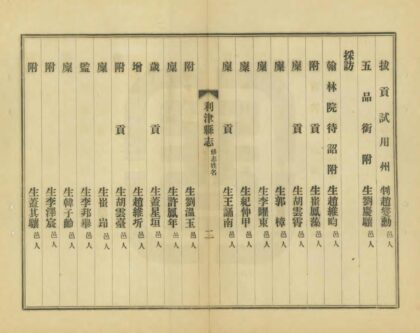 拔貢試用州判趙燮勳邑人
五品銜附生劉慶驤邑人
採訪
翰林院待詔附生趙維昀邑人
附貢生崔鳳藻邑人
廩貢生胡雲霄邑人
廩生郭樟邑人
廩生李曜東邑人
廩生紀仲甲邑人
廩貢生王誦南邑人
利津縣志 修志姓名 二
附生劉溫玉邑人
廩生許鳳年邑人
歲貢生蓋星垣邑人
增生趙維圻邑人
附貢生胡雲臺邑人
廩生崔岿邑人
監生李邦舉邑人
廩生韓子齡邑人
附生李澤宸邑人
附生蓋其驤邑人